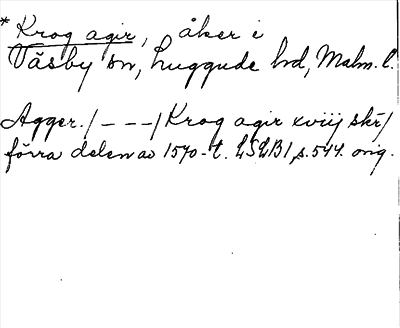 * Krog agir, åker i
Väsby sn, Luggude hd, Malm. l.
Agger. / - - - / Krog agir xviij skr /
förra delen av 1570-t. LSLB1, s. 544. orig.